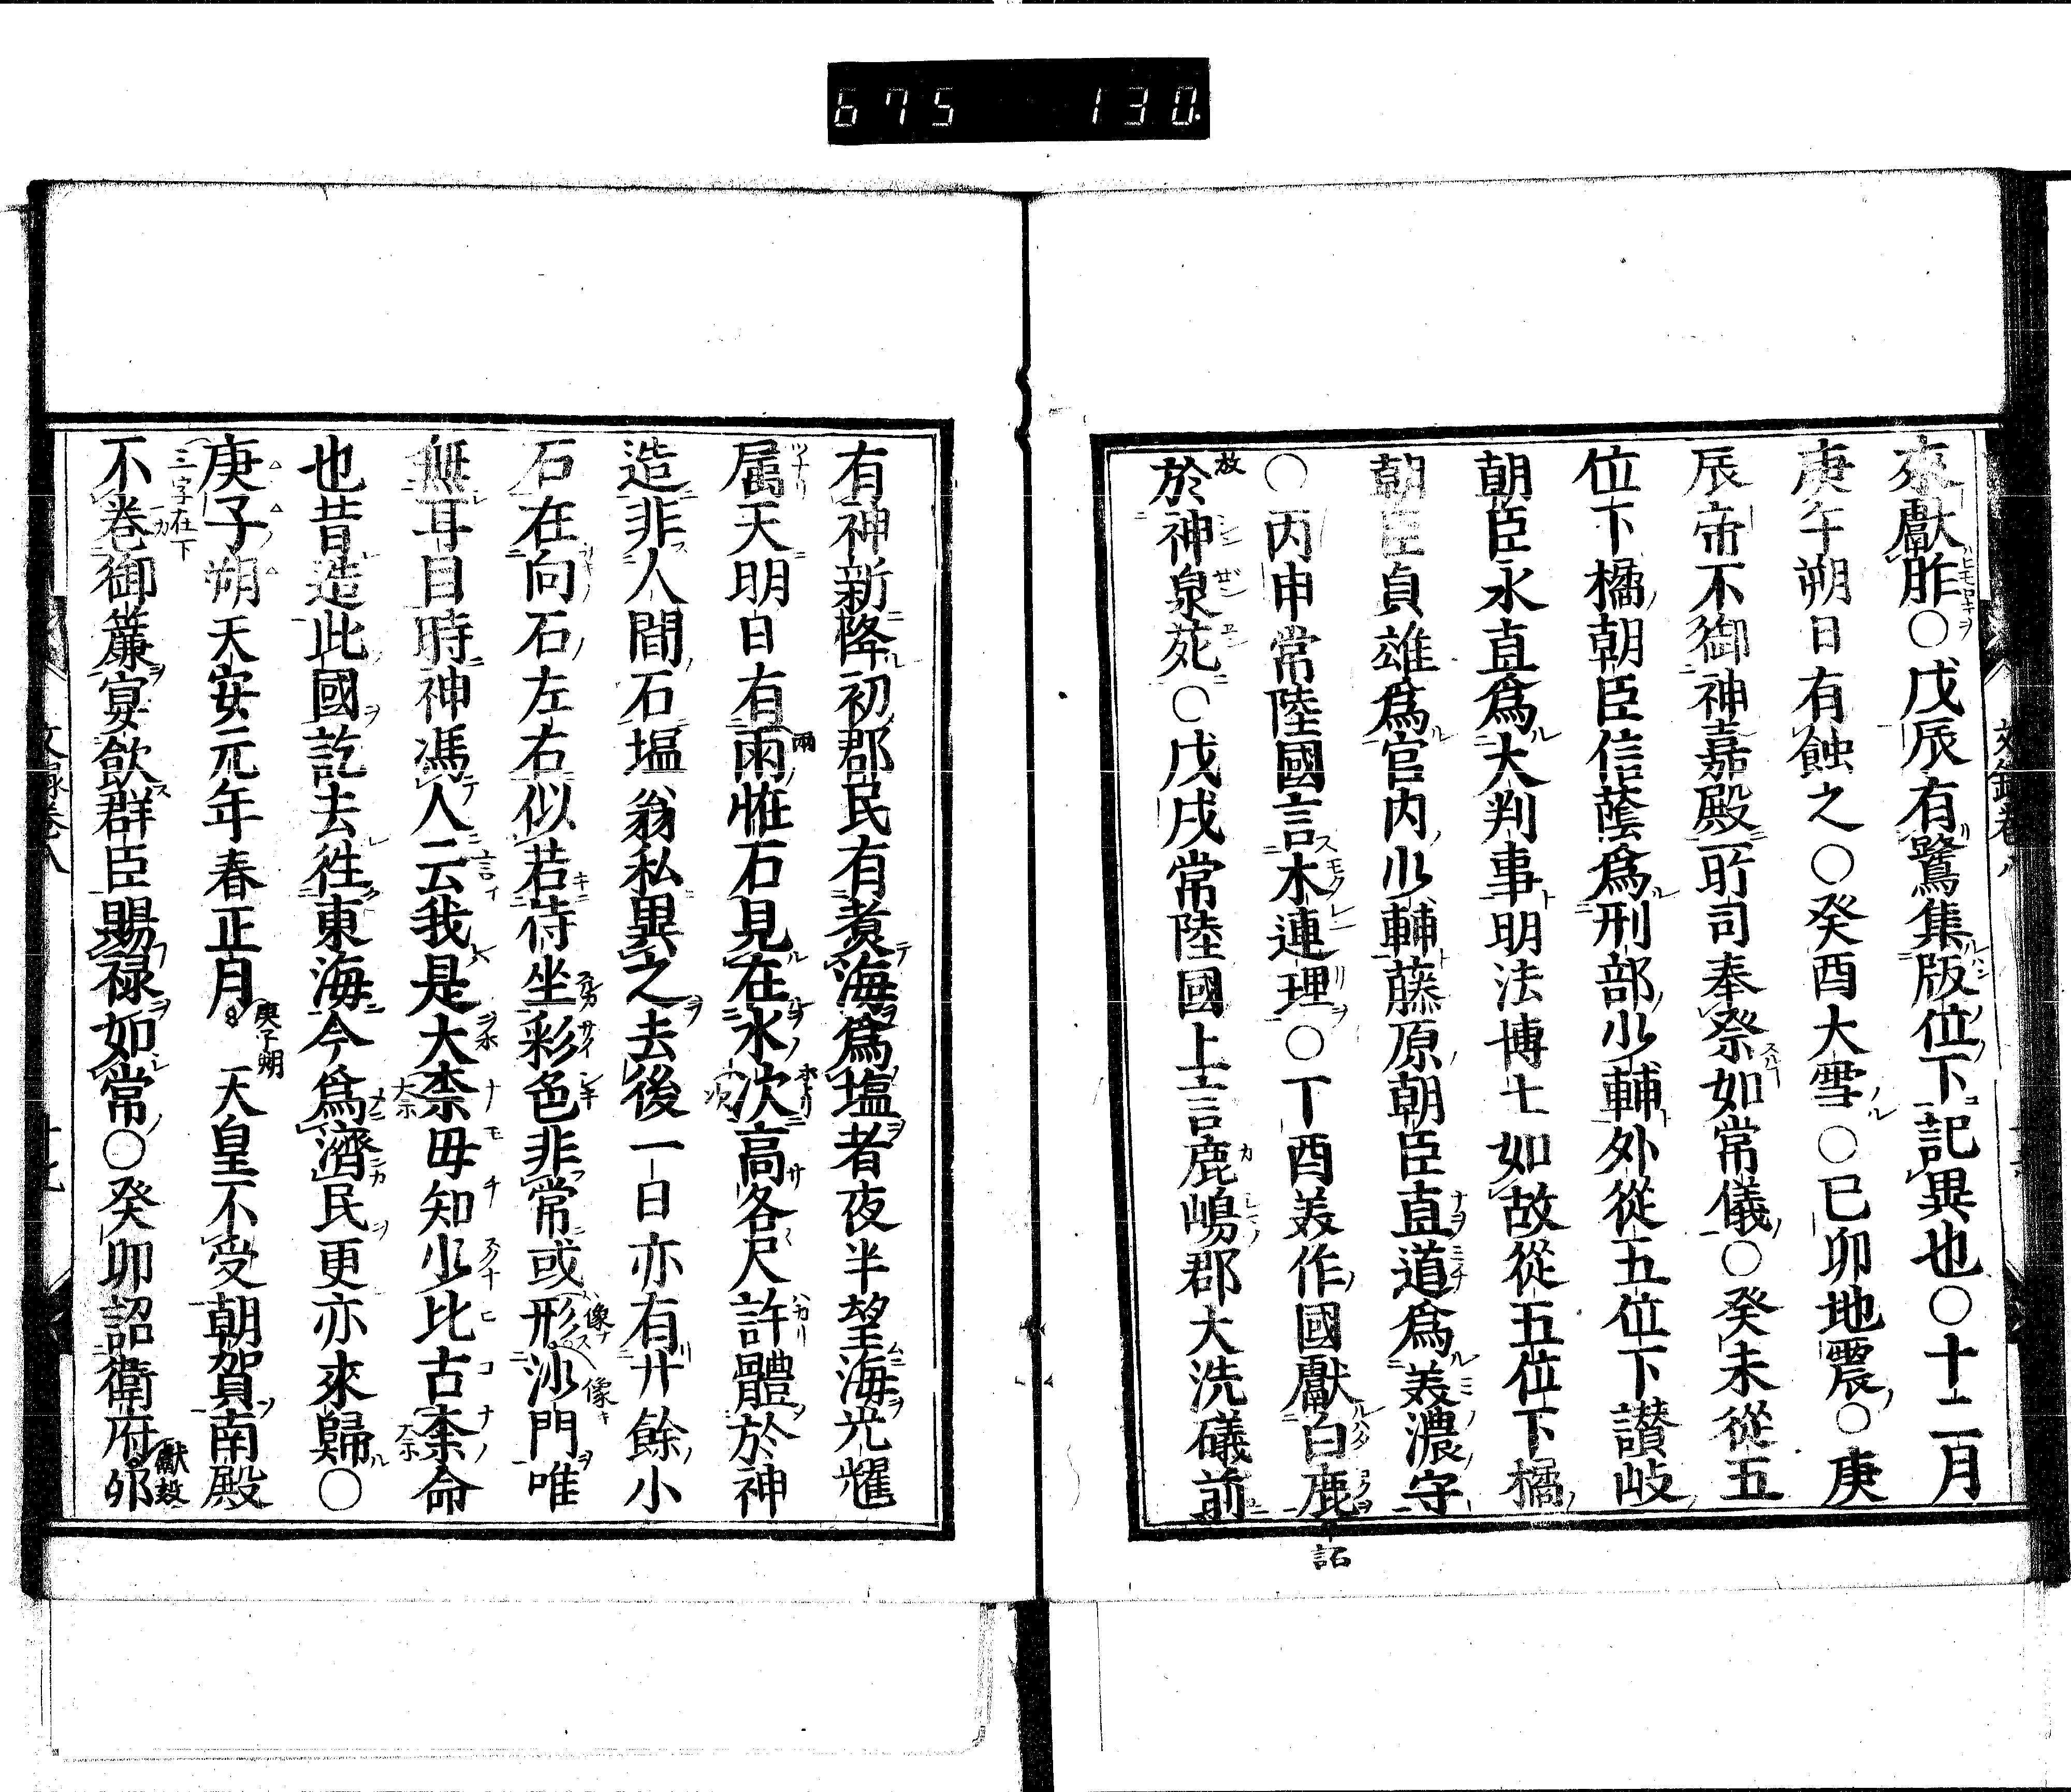 675 130
來獻胙○戊辰有鷺集版位下記異也○十二月
庚午朔日有蝕之○癸酉大雪○已卯地震○庚
辰帝不御神嘉殿所司奉祭如常儀○癸未從五
位下橘朝臣信蔭爲刑部少輔外從五位下讃岐
朝臣永直爲大判事明法博士如故從五位下橘
朝臣貞雄爲官内少輔藤原朝臣直道爲美濃守
○丙申常陸國言木連理○丁酉美作國獻白鹿
詔
放
於神泉苑○戊戌常陸國上言鹿嶋郡大洗礒前
有神新降初郡民有煑海爲塩者夜半望海光耀
属天明日有兩恠石見在水次高各尺許體於神
造非人間石塩翁私異之去後一日亦有廿餘小
石在向石左右似若侍坐彩色非常或形沙門唯
無耳目時神馮人云我是大柰毋知少比古柰命
也昔造此國訖去徃東海今爲濟民更亦來歸○
庚子朔天安元年春正月 天皇不受朝賀南殿
庚子朔
三字在下
不巻御簾宴飲群臣賜禄如常○癸卯詔衛府邜
獻杖